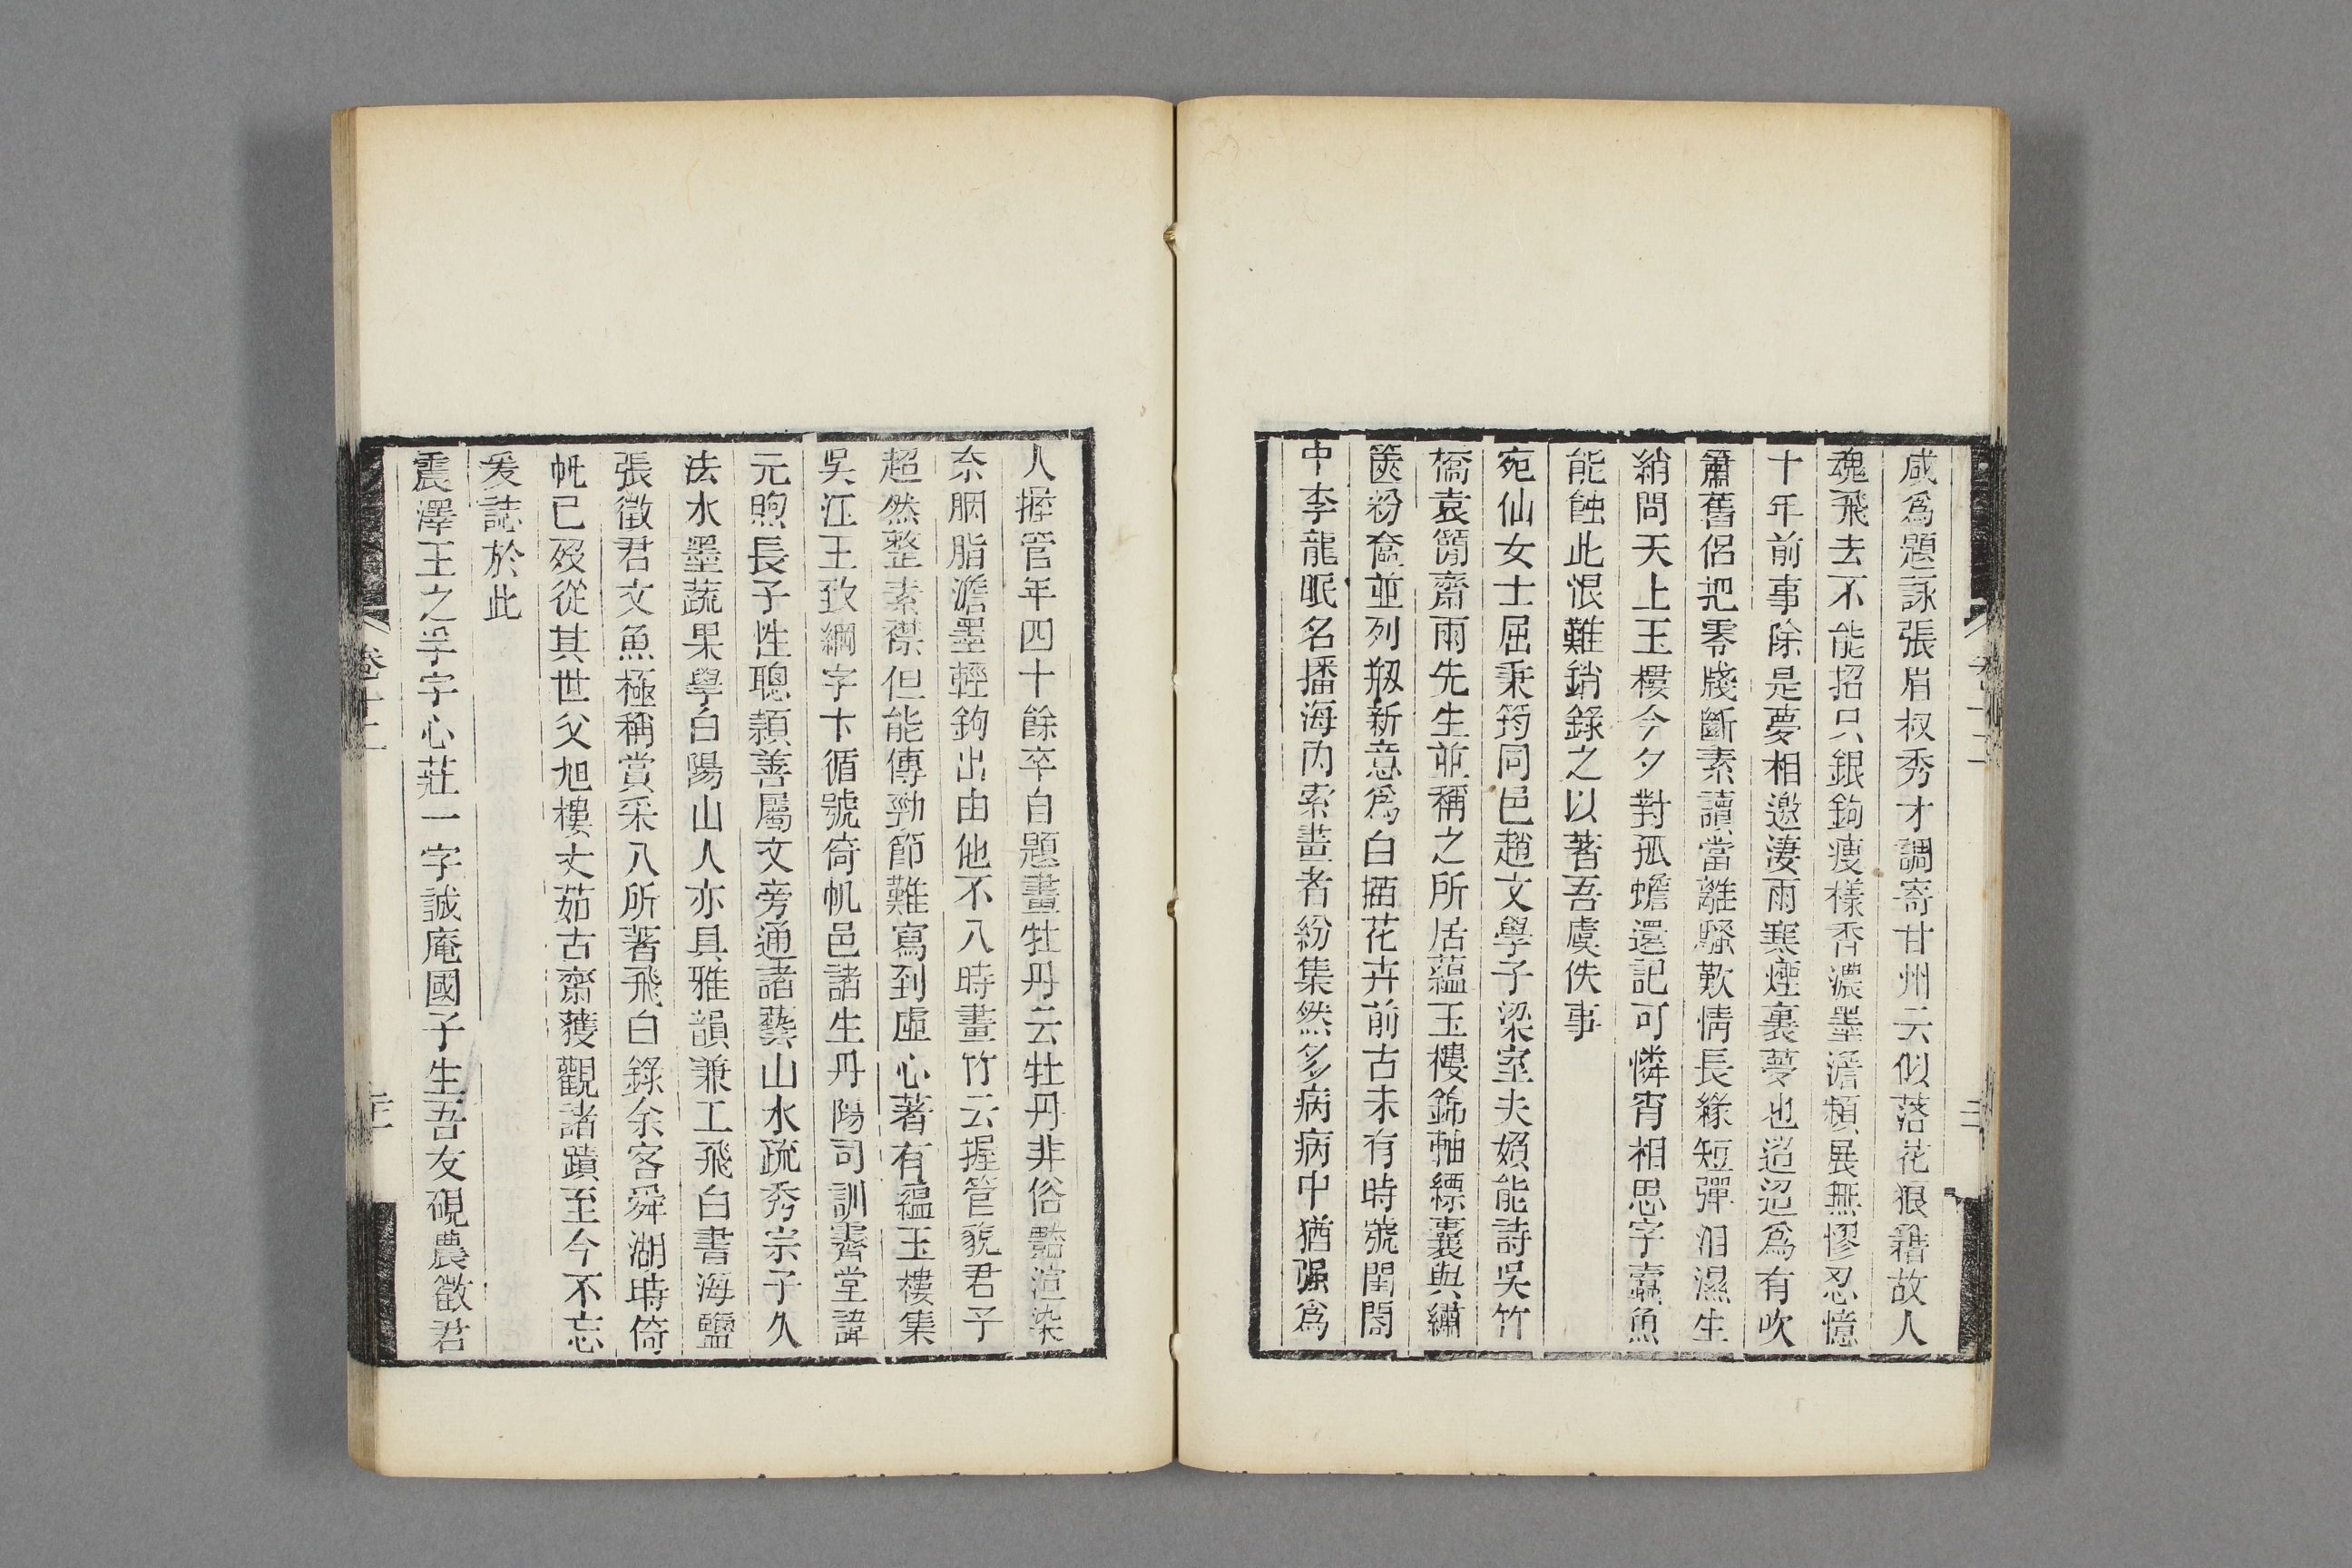 咸爲題詠張眉叔秀才調寄甘州云似落花狼藉故人
魂飛去不能招只銀鉤瘦樣香濃墨澹頻展無憀忍憶
十年前事除是夢相邀淒雨寒煙裏夢也迢迢爲有吹
簫舊侶把零牋斷素讀當離騷歎情長緣短彈泪濕生
綃問天上玉樓今夕對孤蟾還記可憐宵相思字蠹魚
能蝕此恨難銷錄之以著吾虞佚事
宛仙女士屈秉筠同邑趙文學子梁室夫婦能詩吳竹
橋袁簡齋兩先生並稱之所居蘊玉樓錦軸縹囊與繡
篋粉奩並列剏新意爲白描花卉前古未有時號閨閤
中李龍眠名播海內索畫者紛集然多病病中猶强爲
卷十二
人握管年四十餘卒自題畫牡丹云牡丹非俗豔渲染
柰胭脂澹墨輕鉤出由他不入時畫竹云握管貌君子
超然整素襟但能傳勁節難寫到虛心著有蘊玉樓集
吳江王致綱字卞循號倚帆邑諸生丹陽司訓霽堂諱
元煦長子性聰穎善屬文旁通諸藝山水疏秀宗子久
法水墨蔬果學白陽山人亦具雅韻兼工飛白書海鹽
張徵君文魚極稱賞采入所著飛白錄余客舜湖時倚
帆已歿從其世父旭樓丈茹古齋獲觀諸蹟至今不忘
爰誌於此
震澤王之孚字心莊一字誠庵國子生吾友硯農徵君
卷十二